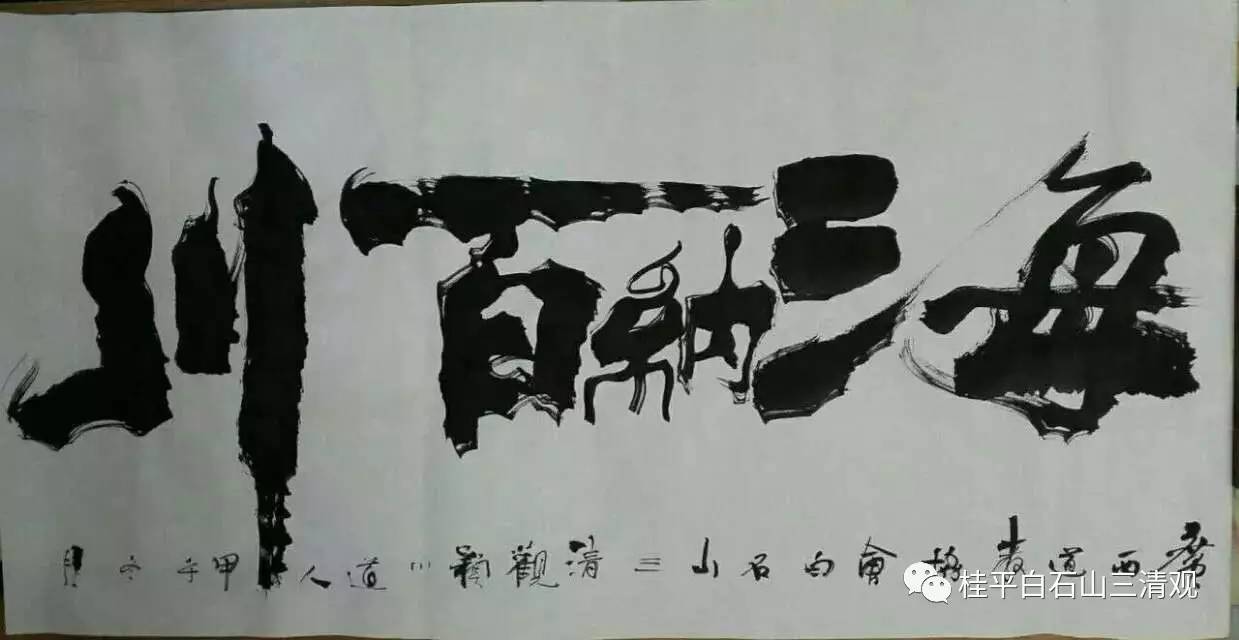 海納百川
廣西道教協會白石山三清觀川道人甲午冬月
桂平白石山三清观